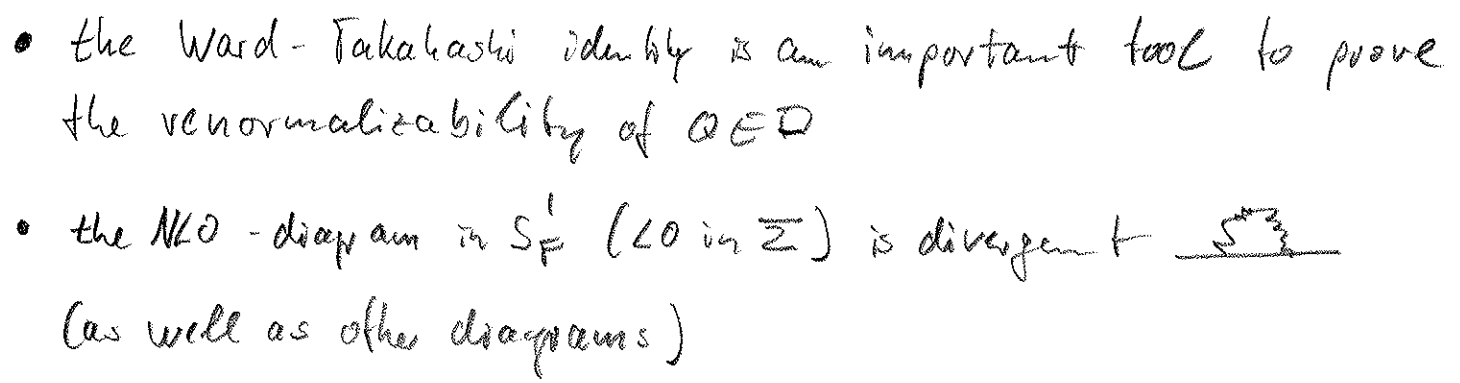 • the Ward-Takahashi identity is an important tool to prove
the renormalizability of QED
• the NLO-diagram in S'_F (LO in Σ) is divergent
(as well as other diagrams)